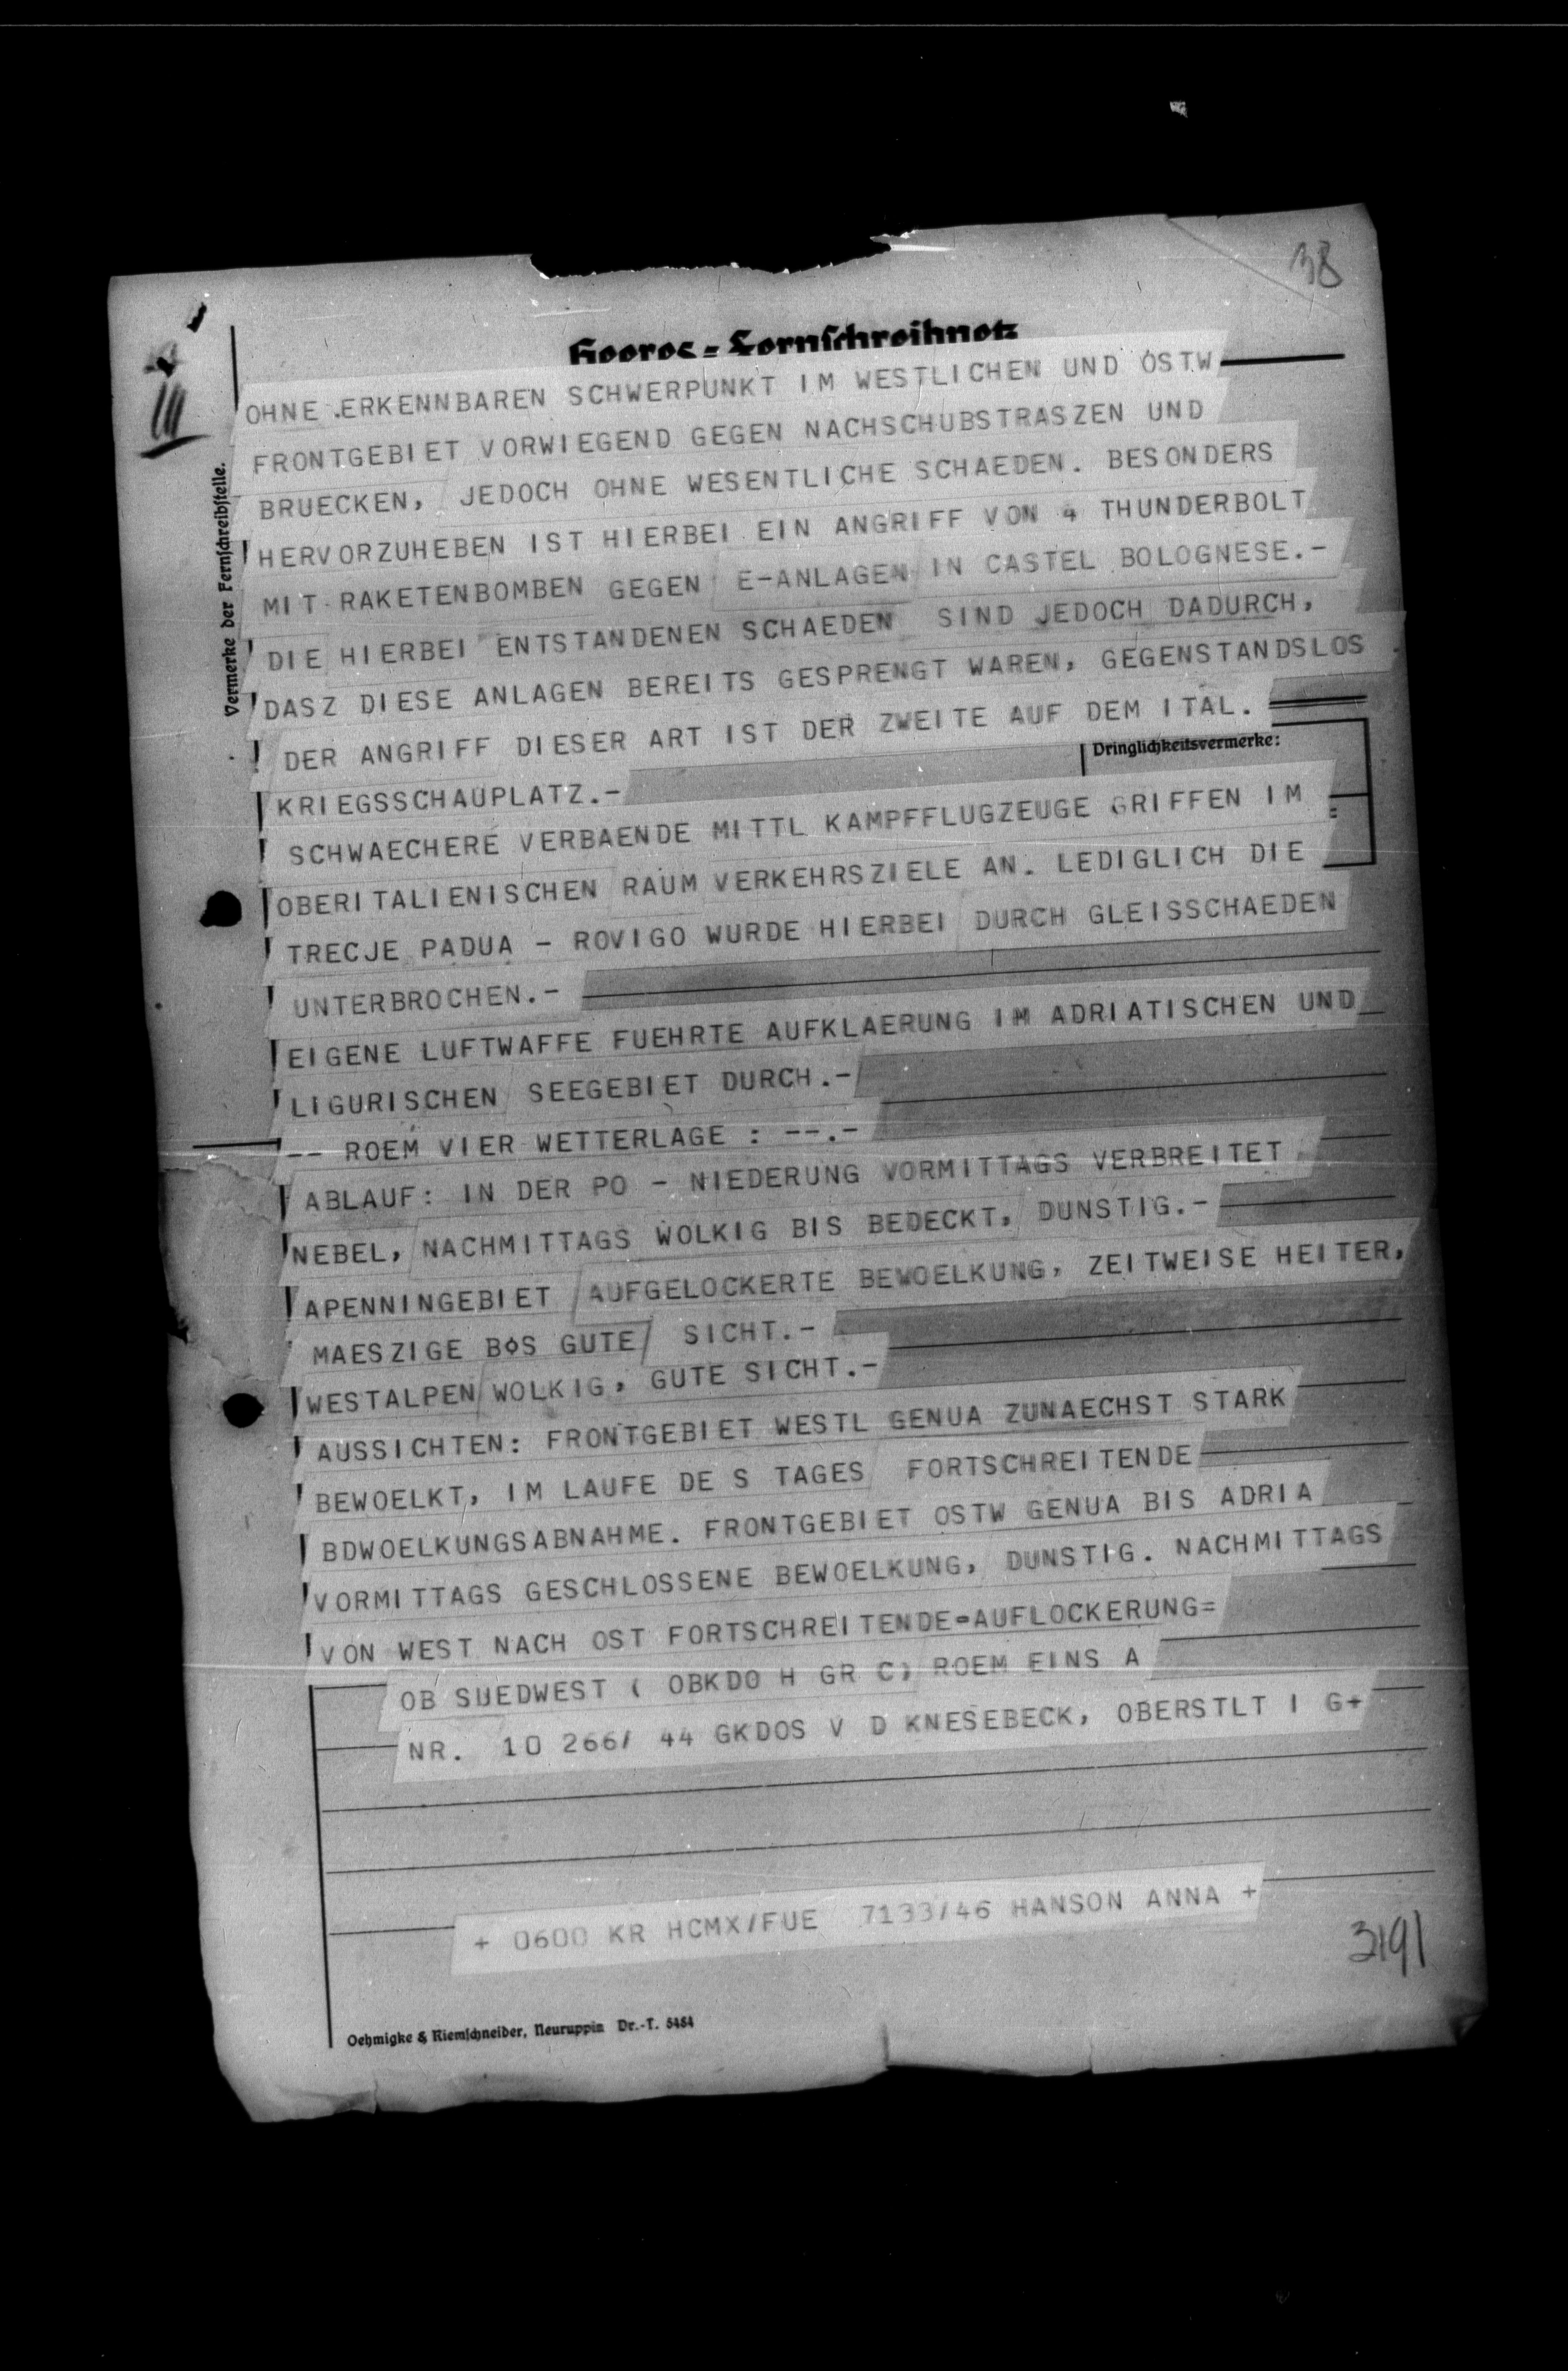 38
Heeres-Fernschreibnetz
III
Vermerke der Fernschreibstelle.
OHNE .ERKENNBAREN SCHWERPUNKT IM WESTLICHEN UND OSTW
FRONTGEBIET VORWIEGEND GEGEN NACHSCHUBSTRASZEN UND
BRUECKEN, JEDOCH OHNE WESENTLICHE SCHAEDEN. BESONDERS
HERVORZUHEBEN IST HIERBEI EIN ANGRIFF VON 4 THUNDERBOLT
MIT RAKETENBOMBEN GEGEN E-ANLAGEN IN CASTEL BOLOGNESE.-
DIE HIERBEI ENTSTANDENEN SCHAEDEN SIND JEDOCH DADURCH,
DASZ DIESE ANLAGEN BEREITS GESPRENGT WAREN, GEGENSTANDSLOS
DER ANGRIFF DIESER ART IST DER ZWEITE AUF DEM ITAL.
Dringlichkeitsvermerke:
KRIEGSSCHAUPLATZ.-
SCHWAECHERE VERBAENDE MITTL KAMPFFLUGZEUGE GRIFFEN IM
OBERITALIENISCHEN RAUM VERKEHRSZIELE AN. LEDIGLICH DIE
TRECJE PADUA - ROVIGO WURDE HIERBEI DURCH GLEISSCHAEDEN
UNTERBROCHEN.-
EIGENE LUFTWAFFE FUEHRTE AUFKLAERUNG IM ADRIATISCHEN UND
LIGURISCHEN SEEGEBIET DURCH.-
-- ROEM VIER WETTERLAGE : --.-
ABLAUF: IN DER PO - NIEDERUNG VORMITTAGS VERBREITET
NEBEL, NACHMITTAGS WOLKIG BIS BEDECKT, DUNSTIG.-
APENNINGEBIET AUFGELOCKERTE BEWOELKUNG, ZEITWEISE HEITER,
MAESZIGE BOS GUTE SICHT.-
WESTALPEN WOLKIG, GUTE SICHT.-
AUSSICHTEN: FRONTGEBIET WESTL GENUA ZUNAECHST STARK
BEWOELKT, IM LAUFE DE S TAGES FORTSCHREITENDE
BDWOELKUNGSABNAHME. FRONTGEBIET OSTW GENUA BIS ADRIA
VORMITTAGS GESCHLOSSENE BEWOELKUNG, DUNSTIG. NACHMITTAGS
VON WEST NACH OST FORTSCHREITENDE-AUFLOCKERUNG=
OB SUEDWEST ( OBKDO H GR C) ROEM EINS A
NR. 10 266/ 44 GKDOS V D KNESEBECK, OBERSTLT I G+
+ 0600 KR HCMX/FUE 7133/46 HANSON ANNA +
3191
Oehmigke & Riemschneider, Neuruppin Dr.-T. 5484